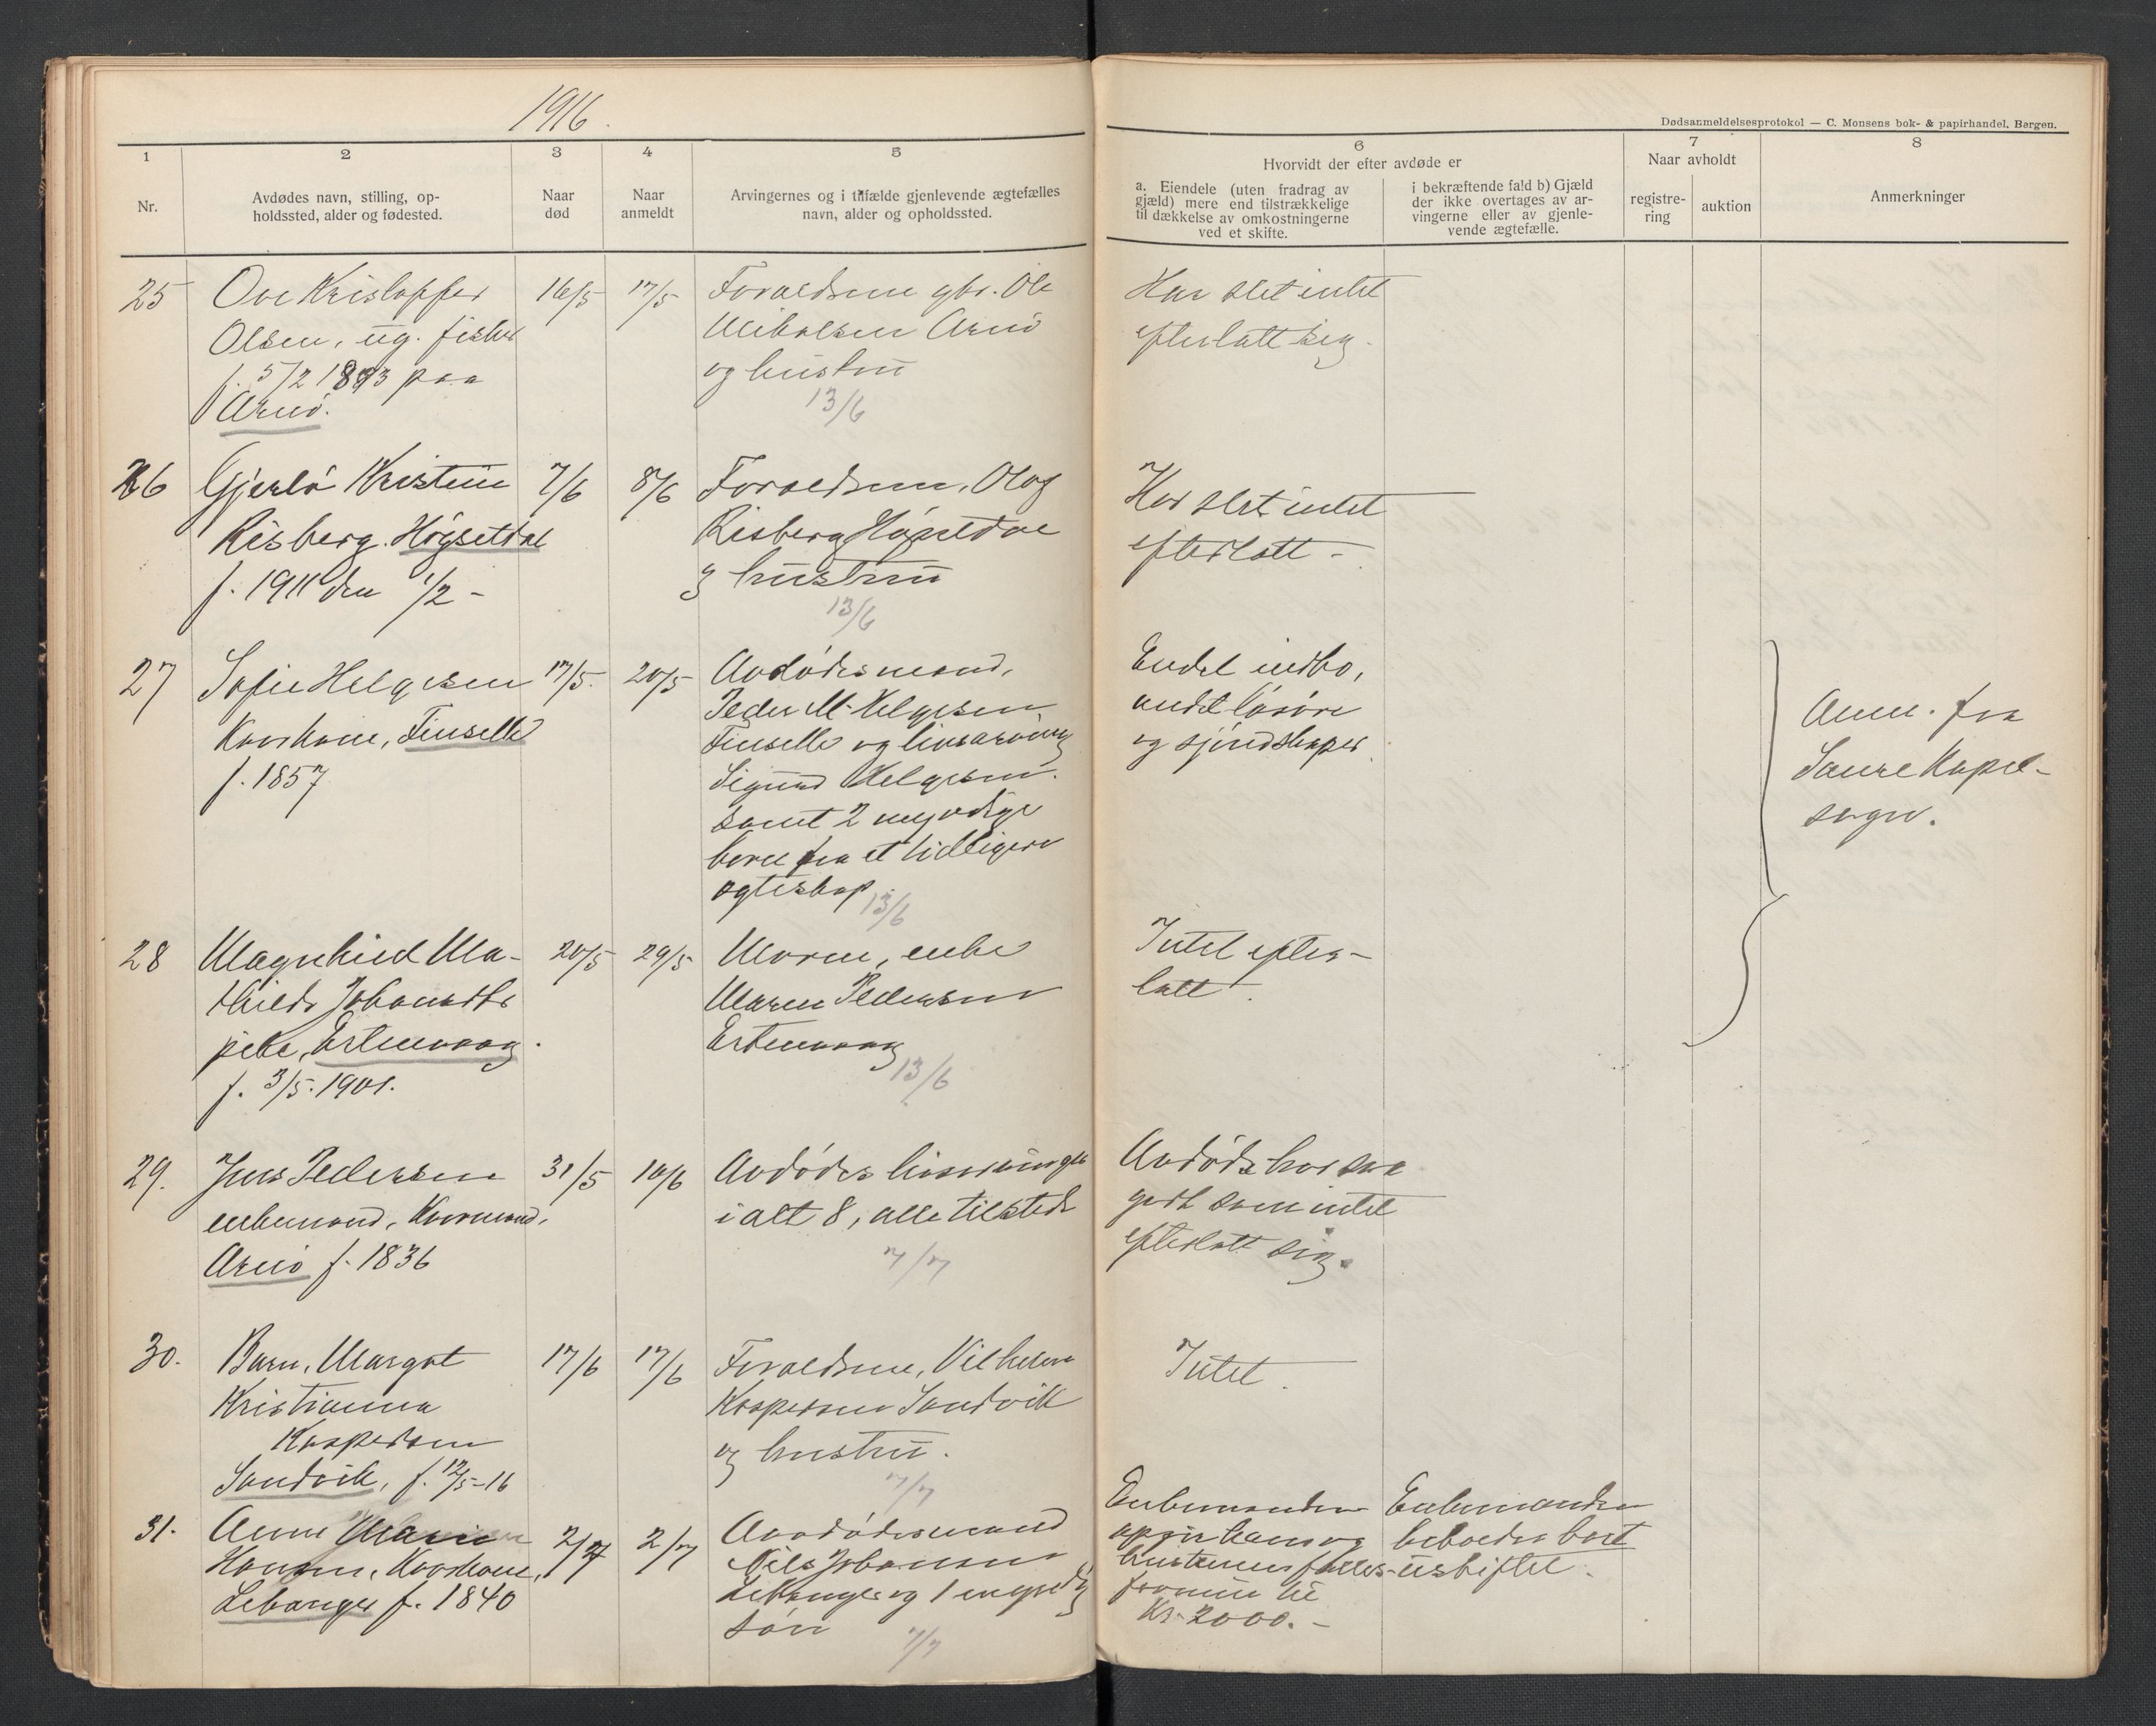 1916.
Dødsanmeldelsesprotokol — C. Monsens bok- & papirhandel, Bergen.
1
2
3
4
5
6
7
8
Nr.
Avdødes navn, stilling, op-
holdssted, alder og fødested.
Naar
død
Naar
anmeldt
Arvingernes og i tilfælde gjenlevende ægtefælles
navn, alder og opholdssted.
Hvorvidt der efter avdøde er
a. Eiendele (uten fradrag av
gjæld) mere end tilstrækkelige
til dækkelse av omkostningerne
ved et skifte.
i bekræftende fald b) Gjæld
der ikke overtages av ar-
vingerne eller av gjenle-
vende ægtefælle.
Naar avholdt
registre-
ring
auktion
Anmerkninger
25
Ove Kristoffer
Olsen, ug. fisker
f. 5/2 1893 paa
Arnø.
16/5
17/5
Forældrene gbr. Ole
Mikalsen Arnø
og hustru
13/6
Har slet intet
efterlatt sig.
26
Gjerlø Kristine
Risberg. Høgsetdal
f. 1911 den 1/2 -
7/6
8/6
Forældrene, Olaf
Risberg Høgsetdal
og hustru
13/6
Har slet intet
efterlatt -
27
Sofie Helgesen
Kaarkone, Finselle
f. 1857
17/5.
20/5
Avdødes mand,
Peder M. Helgesen
Finselle og livsarving
Sigurd Helgesen.
samt 2 myndige
barn fra et tidligere
egteskap.
13/6
Endel indbo,
andet løsøre
og sjøredskaper.
Anm. fra
Saure Kapel-
sogn.
28
Magnhild Ma-
thilde Johansdtr
pike, Ertenvaag.
f. 3/5. 1901.
20/5
29/5
Moren, enke
Maren Pedersen
Ertenvaag
13/6
Intet efter-
latt.
29.
Jens Pedersen
enkemand, Kaarmand,
Arnø f. 1836
31/5
10/6
Avdødes livsarvinger
i alt 8, alle tilstede
7/7
Avdøde har saa
godt som intet
efterlatt sig.
30.
Barn, Margot
Kristianna
Kaspersen
Sandvik, f. 12/5-16
17/6
17/6
Forældrene, Vilhelm
Kaspersen Sandvik
og hustru.
7/7
Intet.
31.
Anne Marie
Hansen, Kaarkone,
Lekanger f. 1840
2/7
2/7
Avdødes mand
Nils Johansen
Lekanger og 1 myndig
søn
7/7
Enkemanden
opgir hans og
hustruens fælles-
formue til
Kr. 2000. -
Enkemanden
beholder boet
uskiftet.